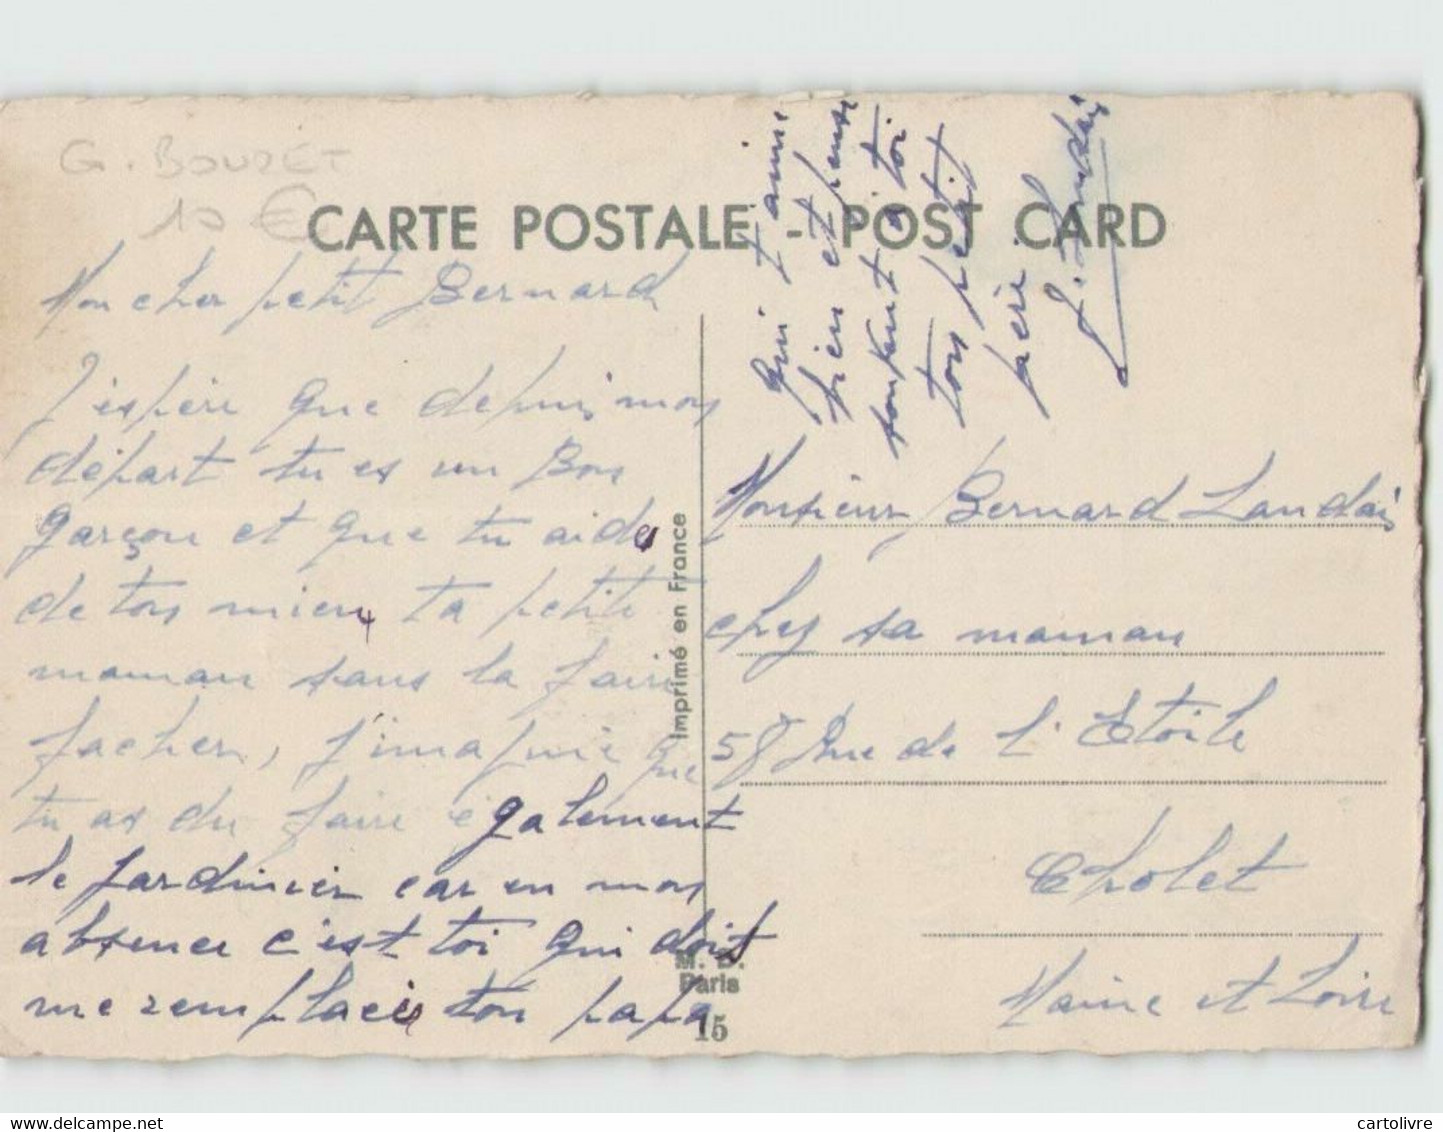 G. BOURET
10 €
CARTE POSTALE - POST CARD
Mon cher petit Bernard
J'espère que depuis mon
départ tu es un Bon
garçon et que tu aides
de ton mieux ta petite
maman sans la faire
facher, j'imagine que
tu as du faire également
le jardinier car en mon
absence c'est toi qui doit
me remplacer ton papa
qui t'aime
bien et pense
souvent a toi
ton petit
père
J. Landais
Imprimé en France
M. D.
Paris
15
Monsieur Bernard Landais
chez sa maman
58 Rue de l'Etoile
Cholet
Maine et Loire
cartolivre